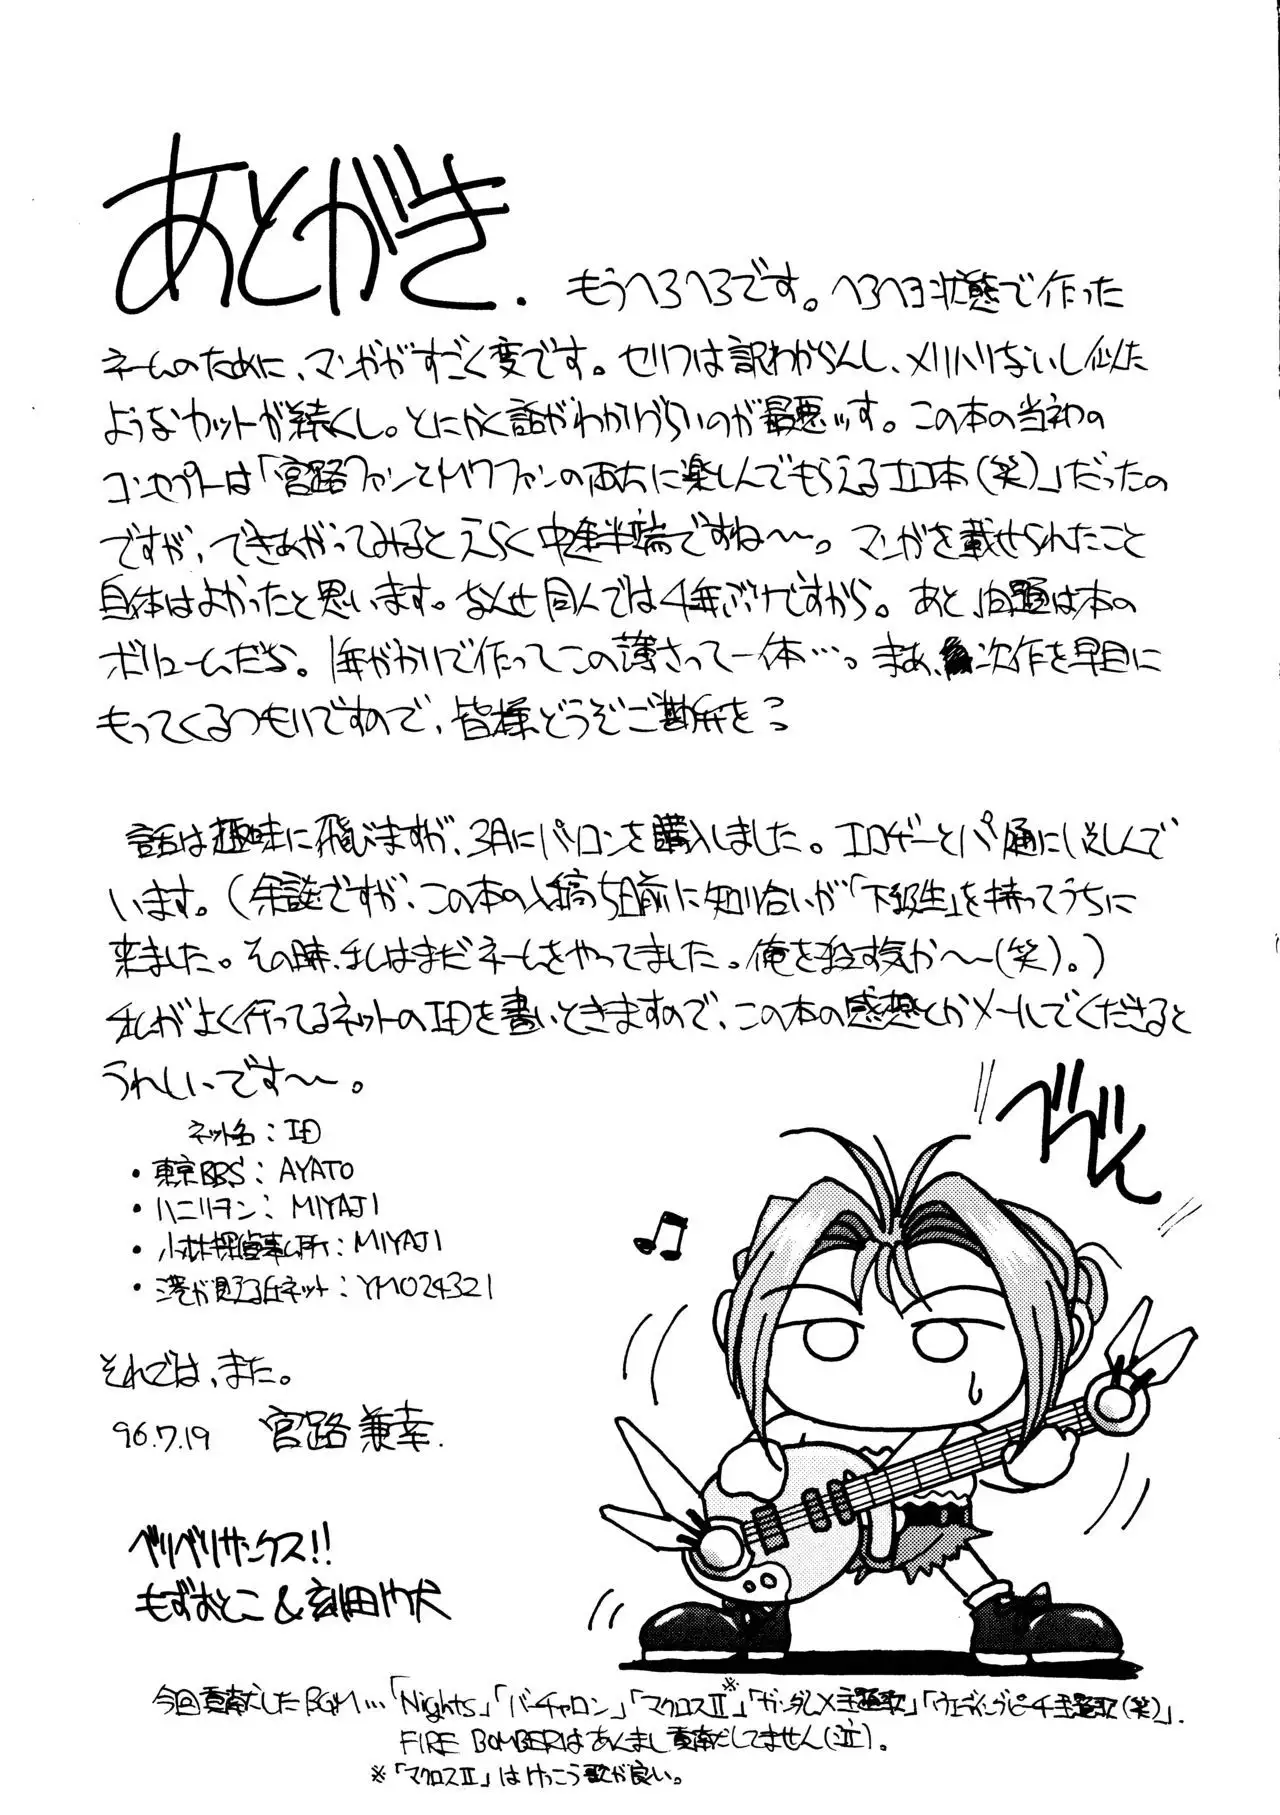 あとがき.
もうへろへろです。へろへろ状態で作った
ネームのために、マンガがすごく変です。セリフは訳わからんし、メリハリないし似た
ようなカットが続くし。とにかく話がわかりづらいのが最悪ッす。この本の当初の
コンセプトは「宮路ファンとMWファンの両方に楽しんでもらえるエロ本(笑)」だったの
ですが、できあがってみるとえらく中途半端ですね〜〜。マンガを載せられたこと
自体はよかったと思います。なんせ同人では4年ぶりですから。あと、問題は本の
ボリュームだぢゃ。1年がかりで作ってこの薄さって一体…。まあ、次作を早目に
もってくるつもりですので、皆様どうぞご勘弁を
話は趣味に飛びますが、3月にパソコンを購入しました。エロゲーとパソ通にいそしんで
います。(余談ですが、この本の入稿5日前に知り合いが「下級生」を持ってうちに
来ました。その時、私はまだネームをやってました。俺を殺す気か〜〜(笑)。)
私がよく行ってるネットのIDを書いときますので、この本の感想とかメールでくださると
うれしいです〜〜。
ネット名:ID
・東京BBS:AYATO
・ハニリヲン:MIYAJI
・小林探偵事ム所:MIYAJI
・港が見える丘ネット:YMO24321
ベベベン
それでは、また。
96.7.19 宮路兼幸.
ベリベリサンクス!!
もずおとこ&刻田門犬
今回貢献したBGM…「Nights」「バーチャロン」「マクロスⅡ※」「ガンダムX主題歌」「ウェディングピーチ主題歌(笑)」.
FIRE BOMBERはあんまし貢献してません(泣)。
※「マクロスⅡ」はけっこう歌が良い。